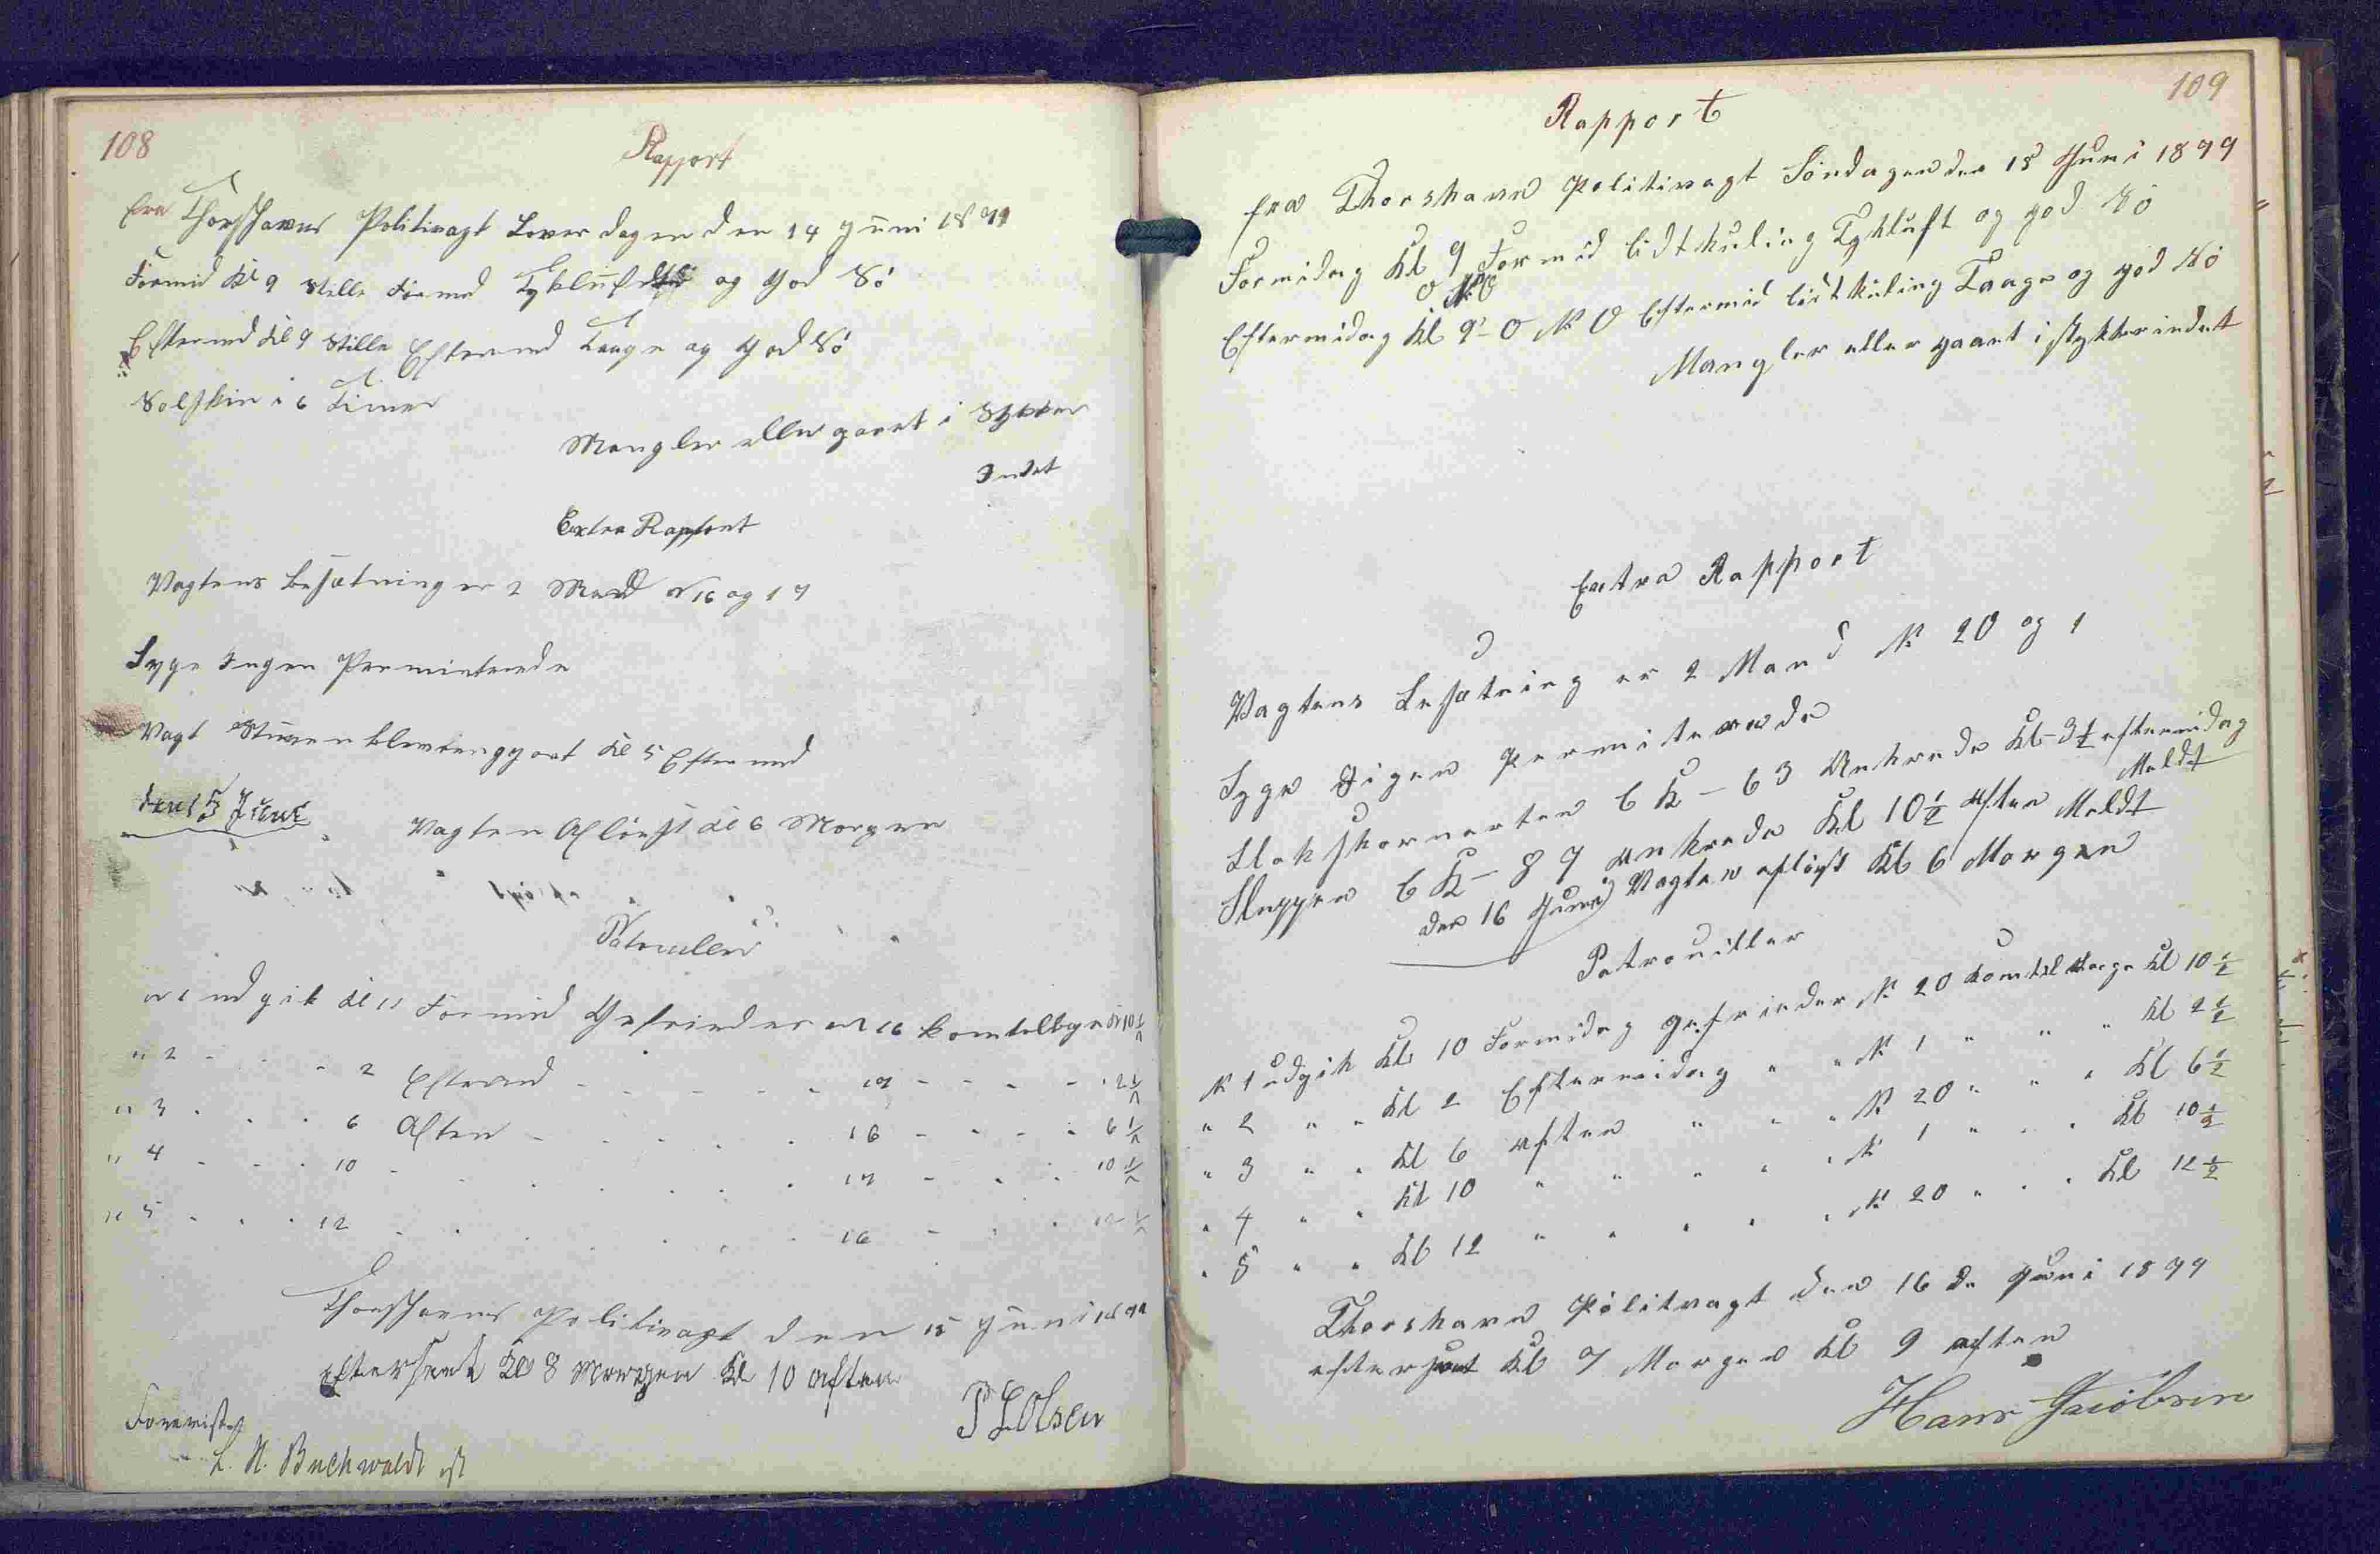 108
Rapport
fra Thorshavns Politivagt Løverdagen den 14 Juni 1879
Formid Kl 9 Stille Formid Tykluft og God Sö
Eftermd Kl 9 Stille Eftermd Taage og God Sö
Solskin i 6 Timer
Mangler eller gaaet i Stykker
Indet
Extra Rapport
Vagtens Besætning er 2 Mand No 16 og 17
Syge Ingen Permiterede
Vagt Stuen blev rengjort Kl 5 Eftermd
den 15 Juni
Vagten Aflöst Kl 6 Morgen
Patrouller
No 1 udgik Kl 10 Formid Gefrieder No 16 kom tilbage Kl 10½
" 2 - - - 2 Eftermd - - - - 17 - - - - 2½
" 3 - - - 6 Aften - - - - 16 - - - - 6½
" 4 - - - 10 - - - - - 17 - - - 10½
" 5 - - - 12 - - - - - 16 - - - 12½
Thorshavns Politivagt den 15 Juni 1879
Efterseet Kl 8 Morgen Kl 10 Aften
P L Olsen
Forevist
L. N. Buchwaldt
109
Rapport
fra Thorshavn Politivagt Söndagen den 15 Juni 1879
Formidag Kl 9 Formid lidt kuling Tykluft og god Sö
Eftermidag Kl 9 - O N O Eftermid lidt kuling Taage og god Sö
Mangler eller gaaet i stykker indet
Extra Rapport
Vagtens Besætning er 2 Mand No 20 og 1
Syge Ingen Permiterede
6 K - 63 Ankrede Kl - 3½ eftermidag
Meldt
Sluppen 6 K - 87 ankrede Kl 10½ aften Meldt
den 16 Juni Vagten aflöst Kl 6 Morgen
Patrouiller
No 1 udgik Kl 10 Formidag gefrieder No 20 kom tilbage Kl 10½
" 2 " " Kl 2 Eftermidag " " No 1 " " " Kl 2½
" 3 " " Kl 6 aften " " " No 20 " " " Kl 6½
" 4 " " Kl 10 " " " " No 1 " " " Kl 10½
" 5 " " Kl 12 " " " " No 20 " " " Kl 12½
Thorshavn Politivagt den 16 de Juni 1879
efterseet Kl 7 Morgen Kl 9 aften
Hans Jacobsen